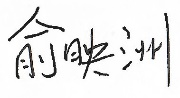 俞映洲